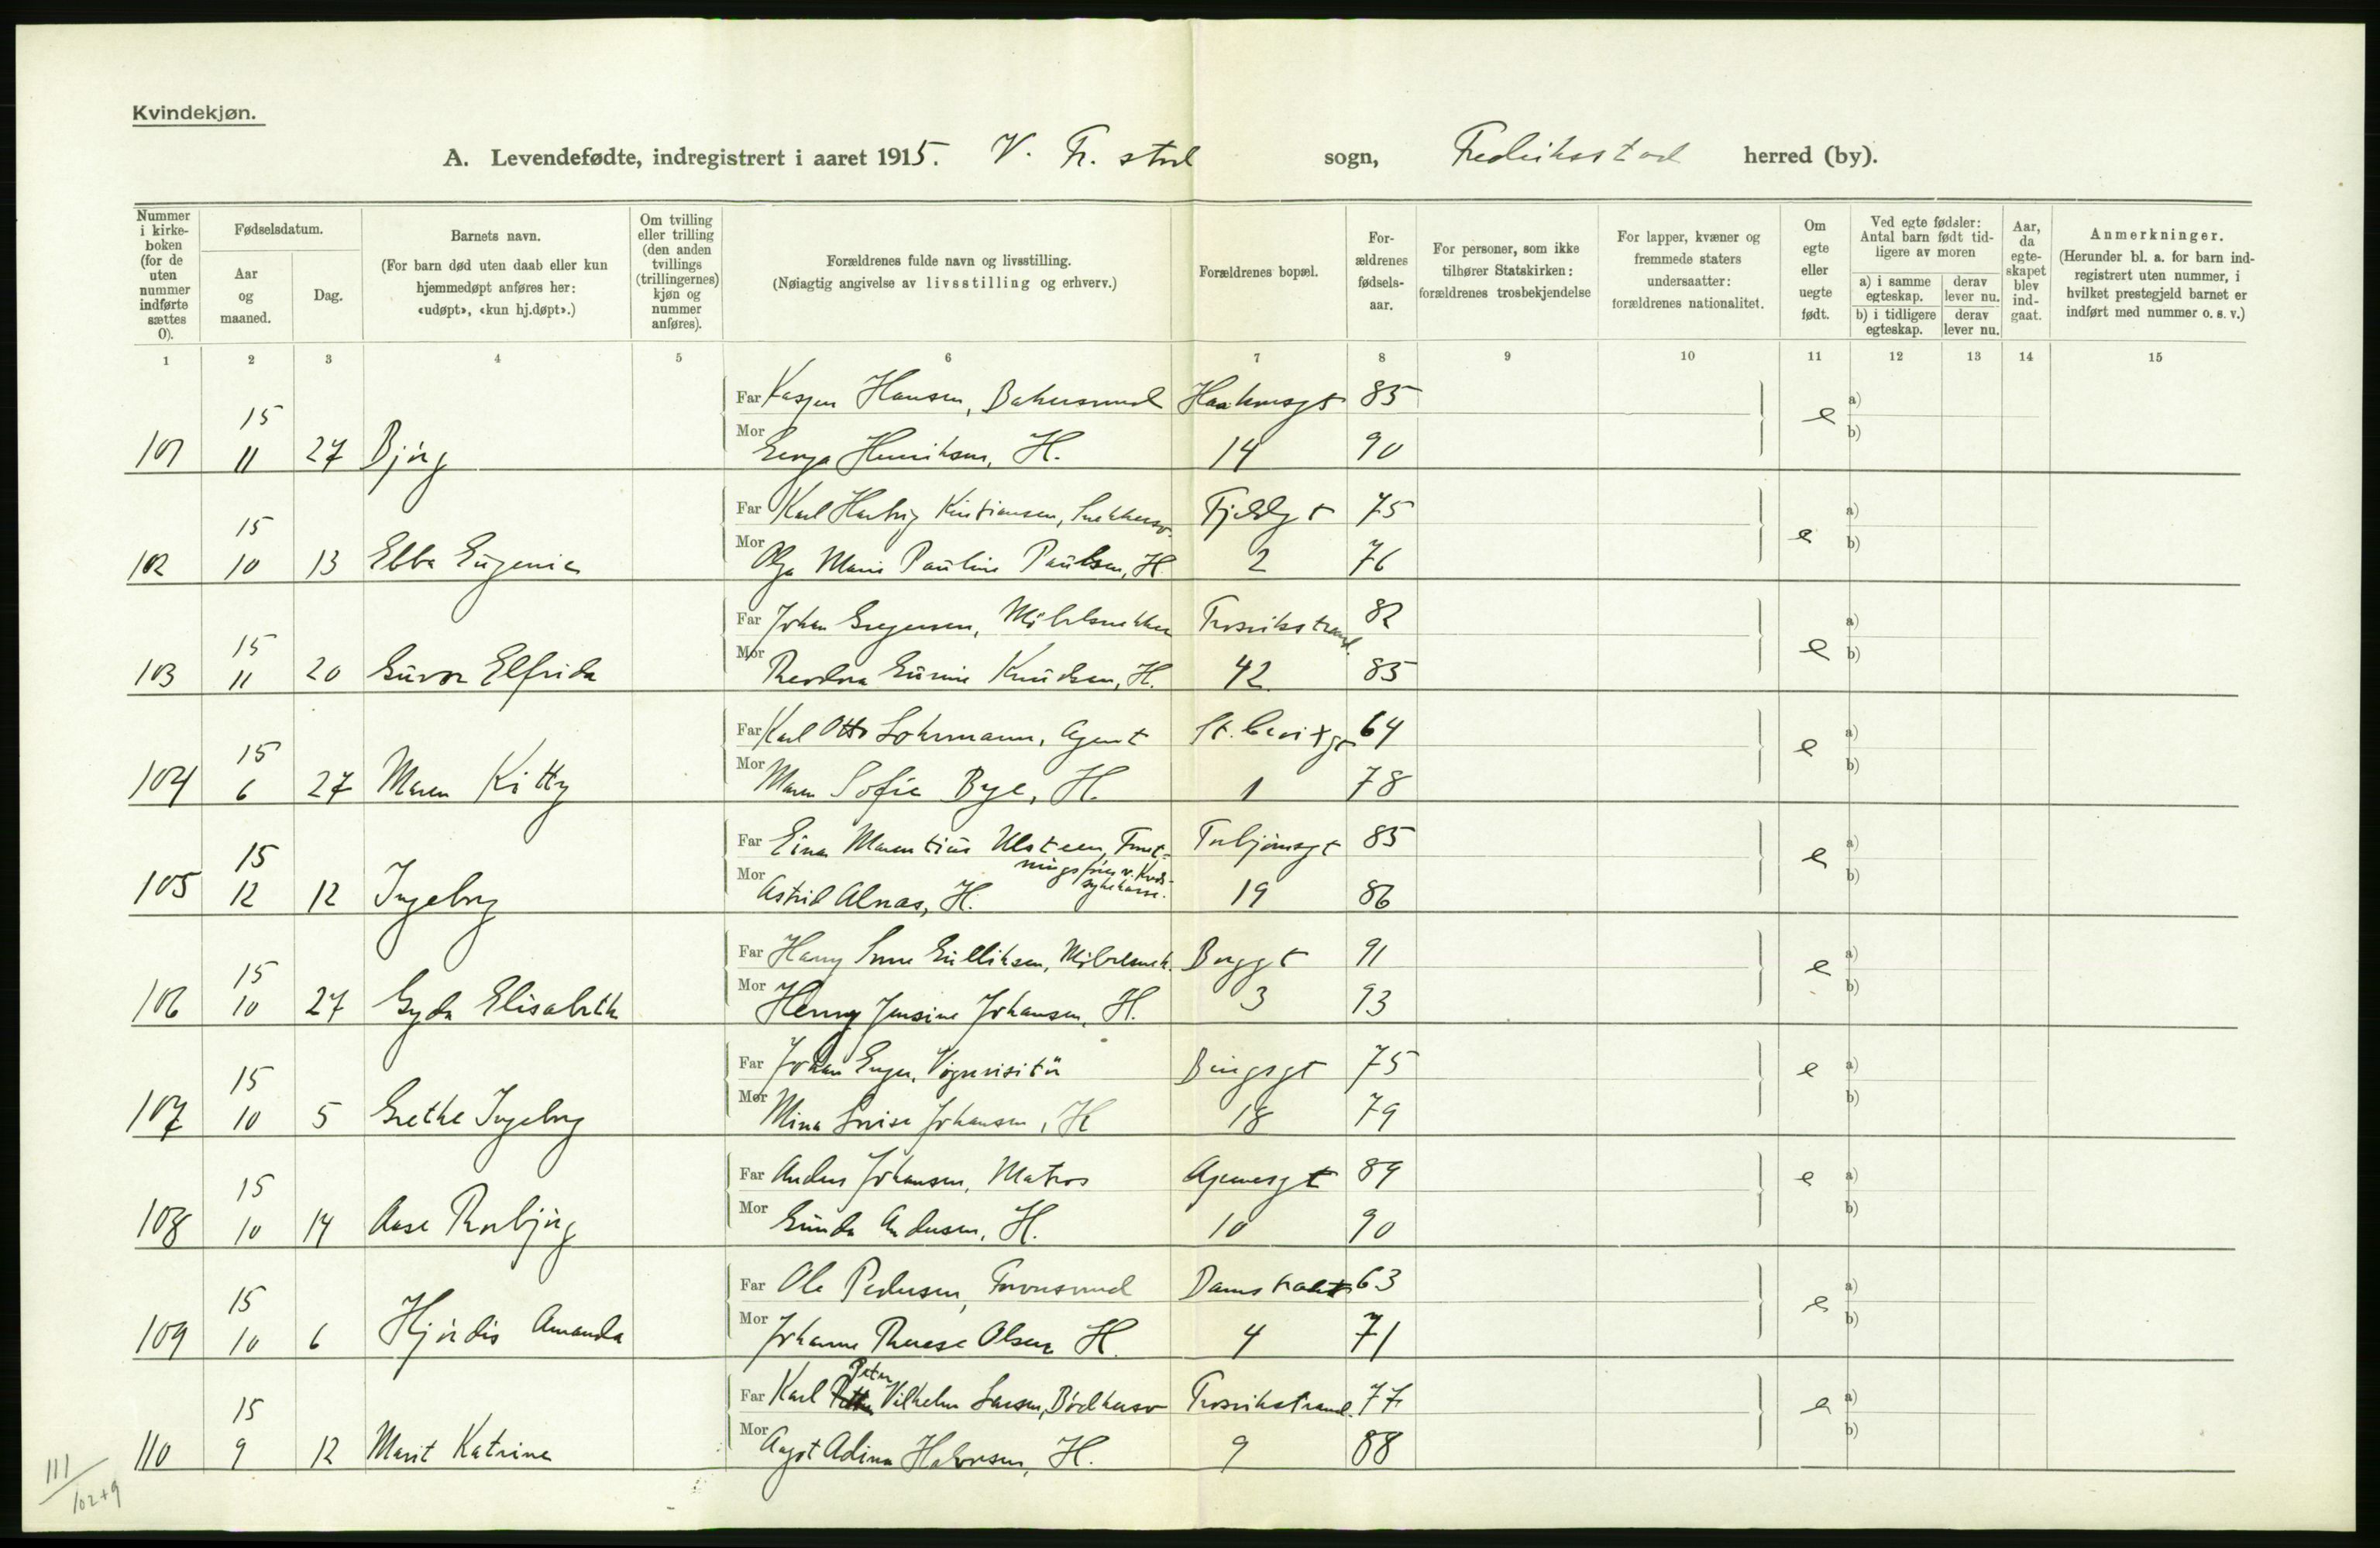 Kvindekjøn.
A. Levendefødte, indregistrert i aaret 1915. V. Fr. stad sogn, Fredriksstad herred (by).
Nummer i kirke-boken (for de uten nummer indførte sættes 0).
Fødselsdatum.
Aar og maaned.
Dag.
Barnets navn.
(For barn død uten daab eller kun hjemmedøpt anføres her: «udøpt», «kun hj.døpt».)
Om tvilling eller trilling (den anden tvillings (trillingernes) kjøn og nummer anføres).
Forældrenes fulde navn og livsstilling.
(Nøiagtig angivelse av livsstilling og erhverv.)
Forældrenes bopæl.
For-ældrenes fødsels-aar.
For personer, som ikke tilhører Statskirken: forældrenes trosbekjendelse
For lapper, kvæner og fremmede staters undersaatter: forældrenes nationalitet.
Om egte eller uegte født.
Ved egte fødsler: Antal barn født tid-ligere av moren
a) i samme egteskap.
derav lever nu.
b) i tidligere egteskap.
derav lever nu.
Aar, da egte-skapet blev ind-gaat.
Anmerkninger.
(Herunder bl. a. for barn ind-registrert uten nummer, i hvilket prestegjeld barnet er indført med nummer o. s. v.)
1 2 3 4 5 6 7 8 9 10 11 12 13 14 15
Far Kasper Hansen, Bakersvend Haakonsgt 85
15 e a)
Mor Henriksen, H. 14 90 b)
101 11 27 Bjørg
Far Karl Hartvig Kristiansen, Snekkersv. Fjeldgt 75
15 e a)
Mor Olga Marie Pauline Paulsen, H. 2 76 b)
102 10 13 Ebba Eugenia
Far Johan Gregersen, Møbelsnekker Trosvikstrand. 82
15 e a)
Mor Theodora Gurine Knudsen, H. 42 85 b)
103 11 20 Guvor Elfrida
Far Karl Otto Lohrmann, Agent St. Croixgt 64
15 e a)
Mor Maren Sofie Bye, H. 1 78 b)
104 6 27 Maren Kitty
Far Einar Marentius Ulsteen, Forret-Torbjørnsgt 85
ningsfører v. Kreds-sykekasse.
15 e a)
Mor Astrid Alnas, H. 19 86 b)
105 12 12 Ingeborg
Far Harry Gulliksen, Møbelsnek. Borggt 91
15 e a)
Mor Henny Jensine Johansen, H. 3 93 b)
106 10 27 Gyda Elisabeth
Far Johan Enger, Vognvisitør Bingsgt 75
15 e a)
Mor Mina Lovise Johansen, H 18 79 b)
107 10 5 Grethe Ingeborg
Far Anders Johansen, Matros Agenesgt 89
15 e a)
Mor Gunda Andersen, H. 10 90 b)
108 10 14 Aase Thorbjørg
Far Ole Pedersen, Damstrædet 63
15 e a)
Mor Johanne Therese Olsen H. 4 71 b)
109 10 6 Hjørdis Amanda
Peter
Far Karl Vilhelm Larsen, Bødkersv Trosvikstrand. 77
15 e a)
Mor Aagot Adina Halvorsen, H. 9 88 b)
110 9 12 Marit Katrine
111
102+9